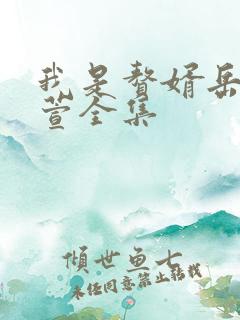 我是赘婿岳
萱全集
倾世鱼七
未经同意禁止转载